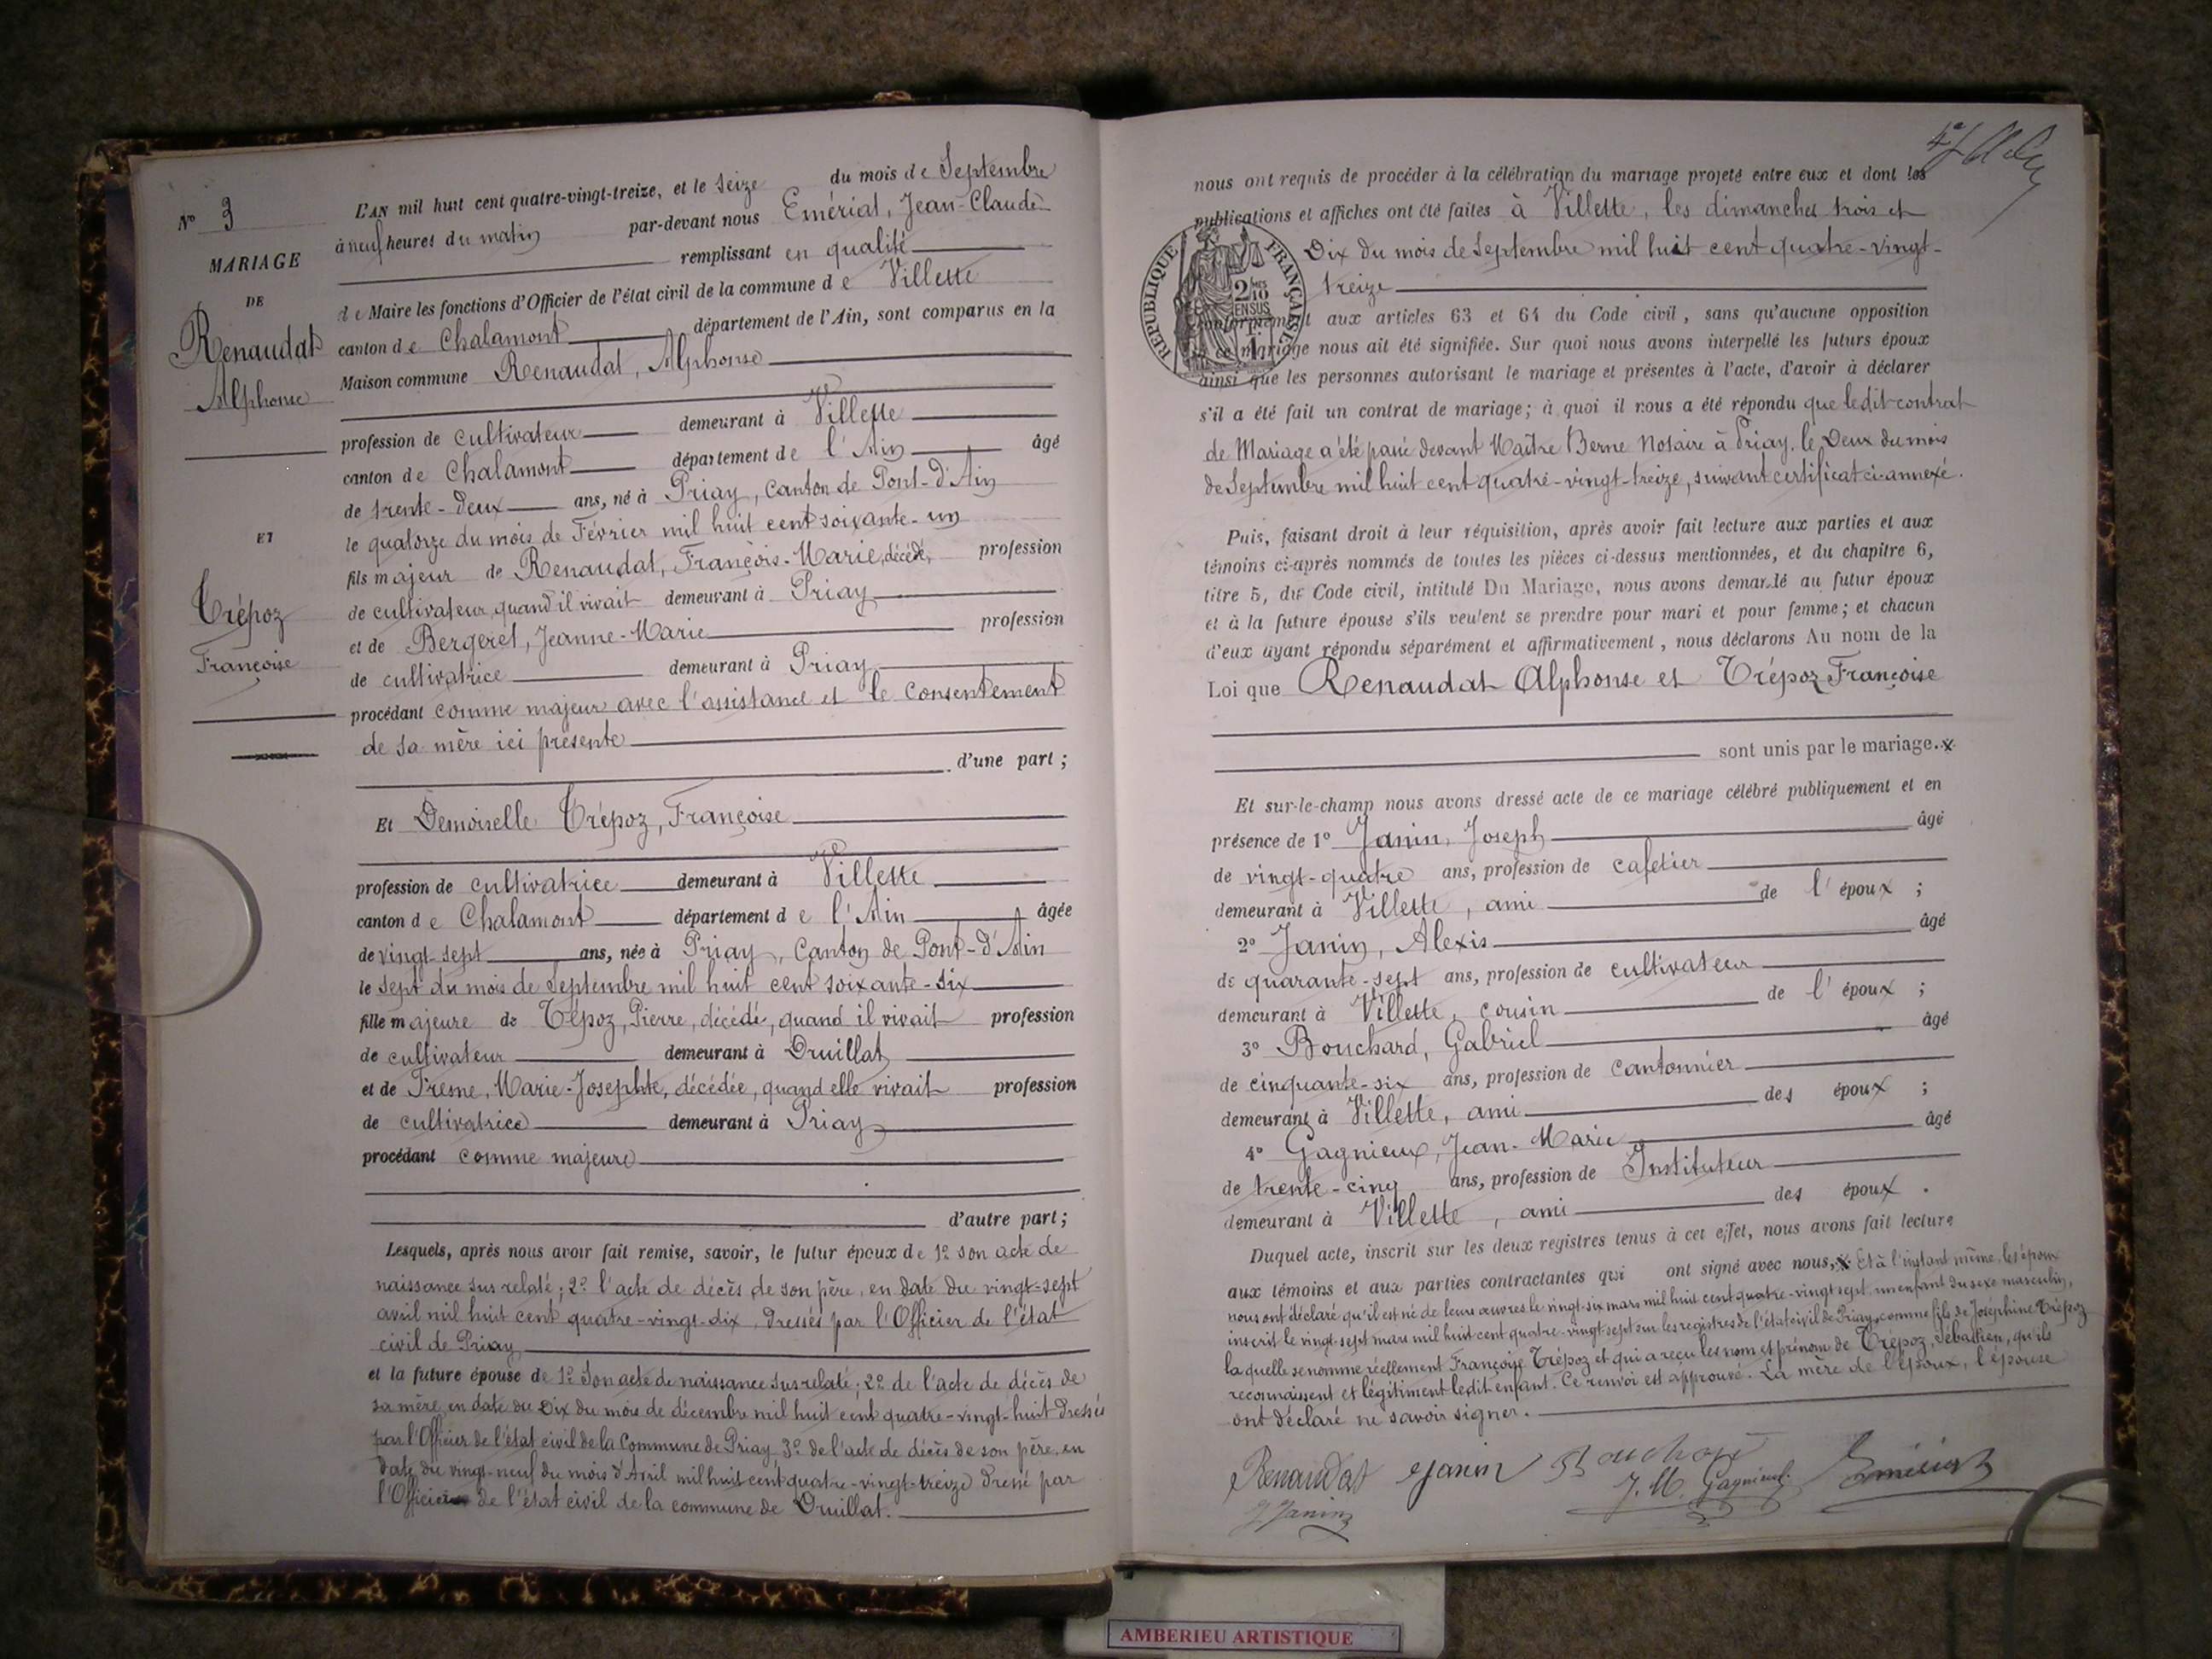 N° 3
MARIAGE
DE
Renaudat
Alphonse
ET
Trépoz
Françoise
L'AN mil huit cent quatre-vingt-treize, et le Seize du mois de Septembre
à neuf heures du matin par-devant nous Emériat, Jean-Claude
remplissant en qualité
de Maire les fonctions d'Officier de l'état civil de la commune de Villette
canton de Chalamont département de l'Ain, sont comparus en la
Maison commune Renaudat, Alphonse
profession de cultivateur demeurant à Villette
canton de Chalamont département de l'Ain âgé
de trente-deux ans, né à Priay, Canton de Pont-d'Ain
le quatorze du mois de Février mil huit cent soixante-un
fils majeur de Renaudat, François-Marie, décédé, profession
de cultivateur, quand il vivait demeurant à Priay
et de Bergeret, Jeanne-Marie profession
de cultivatrice demeurant à Priay
procédant comme majeur avec l'assistance et le Consentement
de sa mère ici présente
d'une part ;
Et Demoiselle Trépoz, Françoise
profession de cultivatrice demeurant à Villette
canton de Chalamont département de l'Ain âgée
de vingt-sept ans, née à Priay, Canton de Pont-d'Ain
le sept du mois de Septembre mil huit cent soixante-six
fille majeure de Trépoz, Pierre, décédé, quand il vivait profession
de cultivateur demeurant à Druillat
et de Fresne, Marie-Josephte, décédée, quand elle vivait profession
de cultivatrice demeurant à Priay
procédant comme majeure
d'autre part ;
Lesquels, après nous avoir fait remise, savoir, le futur époux de 1° son acte de
naissance sus relaté ; 2° l'acte de décès de son père, en date du vingt-sept
avril mil huit cent quatre-vingt-dix, dressés par l'Officier de l'état
civil de Priay
et la future épouse de 1° Son acte de naissance susrelaté ; 2° de l'acte de décès de
sa mère, en date du Dix du mois de décembre mil huit cent quatre-vingt-huit dressés
par l'Officier de l'état civil de la Commune de Priay 3° de l'acte de décès de son père, en
date du vingt-neuf du mois d'Avril mil huit cent quatre-vingt-treize dressé par
l'Officier de l'état civil de la commune de Druillat.
nous ont requis de procéder à la célébration du mariage projeté entre eux et dont les
publications et affiches ont été faites à Villette, les dimanches trois et
Dix du mois de Septembre mil huit cent quatre-vingt-
treize
RÉPUBLIQUE FRANÇAISE
2/10 EN SUS
conformément aux articles 63 et 64 du Code civil, sans qu'aucune opposition
à ce mariage nous ait été signifiée. Sur quoi nous avons interpellé les futurs époux
ainsi que les personnes autorisant le mariage et présentes à l'acte, d'avoir à déclarer
s'il a été fait un contrat de mariage ; à quoi il nous a été répondu que ledit contrat
de Mariage a été passé devant Maître Berne Notaire à Priay, le Deux du mois
de Septembre mil huit cent quatre-vingt-treize, suivant certificat ci-annexé.
Puis, faisant droit à leur réquisition, après avoir fait lecture aux parties et aux
témoins ci-après nommés de toutes les pièces ci-dessus mentionnées, et du chapitre 6,
titre 5, du Code civil, intitulé Du Mariage, nous avons demandé au futur époux
et à la future épouse s'ils veulent se prendre pour mari et pour femme ; et chacun
d'eux ayant répondu séparément et affirmativement, nous déclarons Au nom de la
Loi que Renaudat Alphonse et Trépoz Françoise
sont unis par le mariage. x
Et sur-le-champ nous avons dressé acte de ce mariage célébré publiquement et en
présence de 1° Janin, Joseph âgé
de vingt-quatre ans, profession de cafetier
demeurant à Villette, ami de l'époux ;
2° Janin, Alexis âgé
de quarante-sept ans, profession de cultivateur
demeurant à Villette, cousin de l'époux ;
3° Bouchard, Gabriel âgé
de cinquante-six ans, profession de Cantonnier
demeurant à Villette, ami des époux ;
4° Gagnieux, Jean-Marie âgé
de trente-cinq ans, profession de Instituteur
demeurant à Villette, ami des époux .
Duquel acte, inscrit sur les deux registres tenus à cet effet, nous avons fait lecture
aux témoins et aux parties contractantes qui ont signé avec nous, x Et à l'instant même, les époux
nous ont déclaré qu'il est né de leurs œuvres, le vingt-six mars mil huit cent quatre-vingt sept, un enfant du sexe masculin,
inscrit le vingt-sept mars mil huit cent quatre-vingt sept sur les registres de l'état civil de Priay, comme fils de Joséphine Trépoz
laquelle se nomme réellement Françoise Trépoz et qui a reçu les nom et prénom de Trépoz, Sébastien, qu'ils
reconnaissent et légitiment ledit enfant. Ce renvoi est approuvé. La mère de l'époux, l'épouse
ont déclaré ne savoir signer.
Renaudat Janin Bouchard J. M. Gagnieux Emériat
J Janin
AMBERIEU ARTISTIQUE